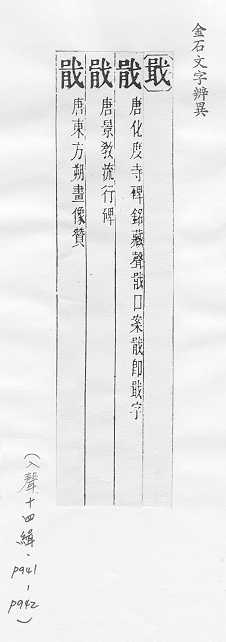 金石文字辨異
戢
戢 唐化度寺碑銘藏聲戢口案戢即戢字
戢 唐景教流行碑
戢 唐東方朔畫像贊
(入聲十四緝.P941-P942)